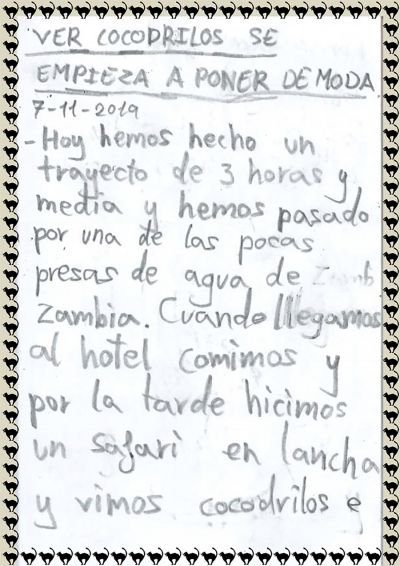 VER COCODRILOS SE
EMPIEZA A PONER DE MODA
7-11-2019
-Hoy hemos hecho un
trayecto de 3 horas y
media y hemos pasado
por una de las pocas
presas de agua de Zamb
Zambia. Cuando llegamos
al hotel comimos y
por la tarde hicimos
un safari en lancha
y vimos cocodrilos e